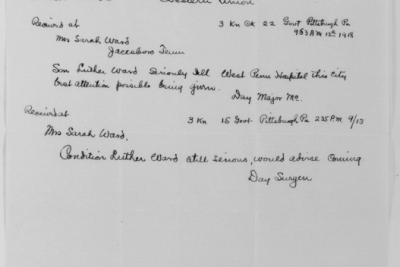 Western Union
Received at 3 Kn GK 22 Govt Pittsburgh Pa
953 AM 12th 1918
Mrs Sarah Ward
Jacksboro Tenn
Son Luther Ward Seriously Ill West Penn Hospital this City
best attention possible being given.
Day Major Mc.
Received at 3 Kn 15 Govt Pittsburgh Pa 235 P.M. 9/13
Mrs Sarah Ward.
Condition Luther Ward still serious, would advise coming
Day Surgeon